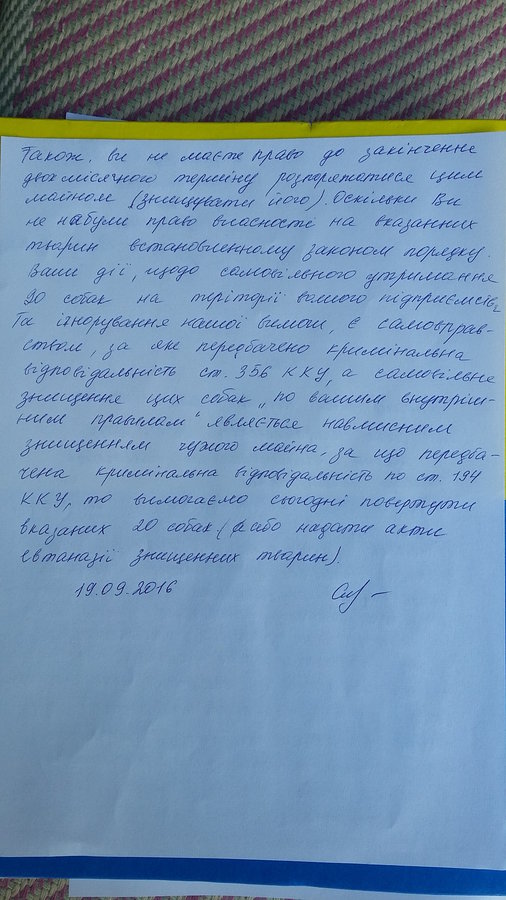 Також, ви не маєте право до закінченне
двох місячного терміну розпоряжатися цим
майном (знищувати його). Оскільки Ви
не набули право власності на вказанних
тварин встановленному законом порядку.
Ваши дії, щодо самовільного утримання
20 собак на теріторії вашого підприємства
Та ігнорування нашої вимоги, є самоправ-
ством, за яке передбачено кримінальна
відповідальність ст. 356 ККУ, а самовільне
знищення цих собак „по вашим внутріш-
ним правилам" являється навмисним
знищенням чужого майна, за що передба-
чена кримінальна відповідальність по ст. 194
ККУ, то вимагаємо сьогодні повернути
вказаних 20 собак (або надати акти
евтаназії знищенних тварин).
19.09.2016